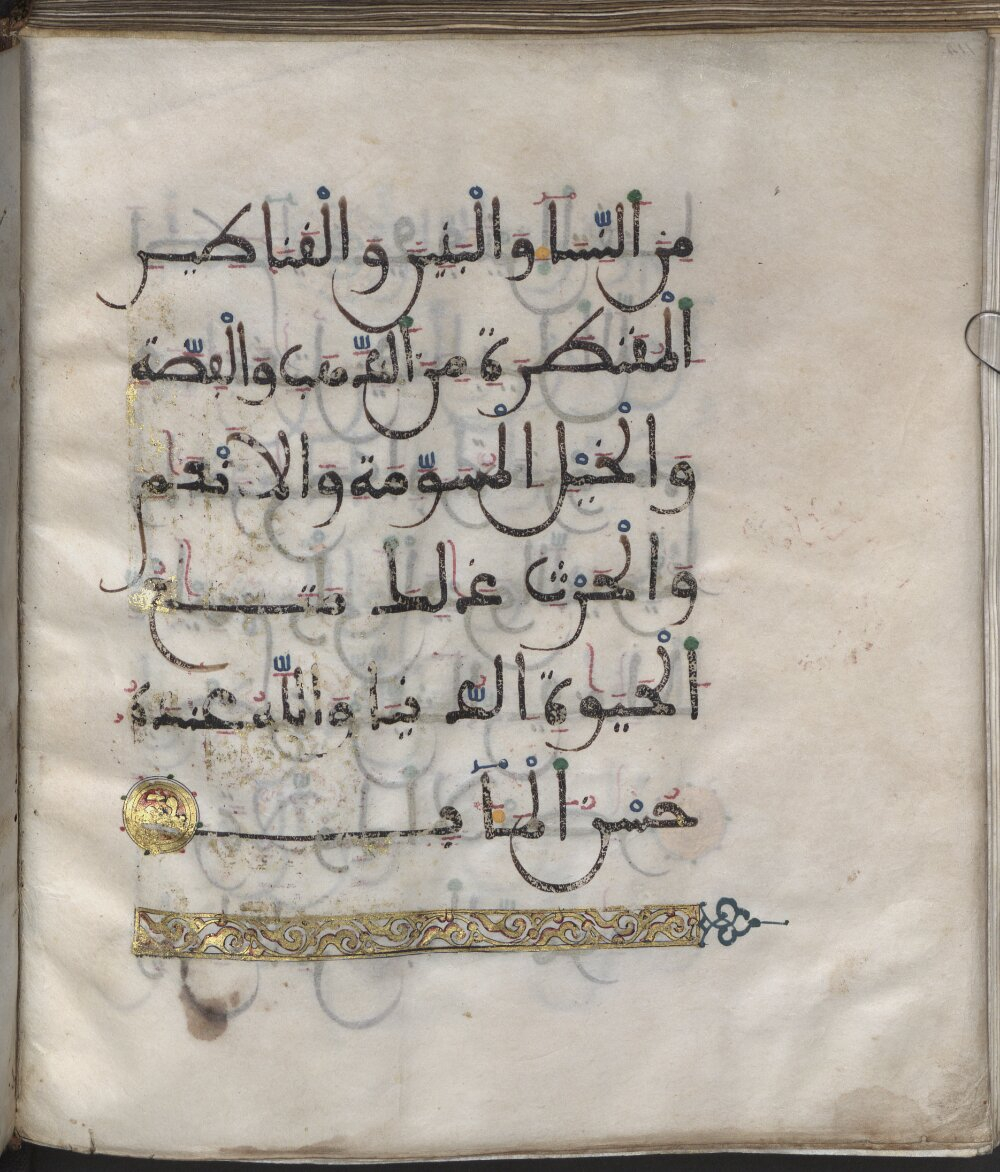 مِنَ ٱلنِّسَآءِ وَٱلْبَنِينَ وَٱلْقَنَٰطِيرِ
ٱلْمُقَنطَرَةِ مِنَ ٱلذَّهَبِ وَٱلْفِضَّةِ
وَٱلْخَيْلِ ٱلْمُسَوَّمَةِ وَٱلَانْعَٰمِ
وَٱلْحَرْثِ ذَٰلِكَ مَتَٰعُ
ٱلْحَيَوٰةِ ٱلدُّنْيَا وَٱللَّهُ عِندَهُۥ
حُسْنُ ٱلْمَـَٔابِ